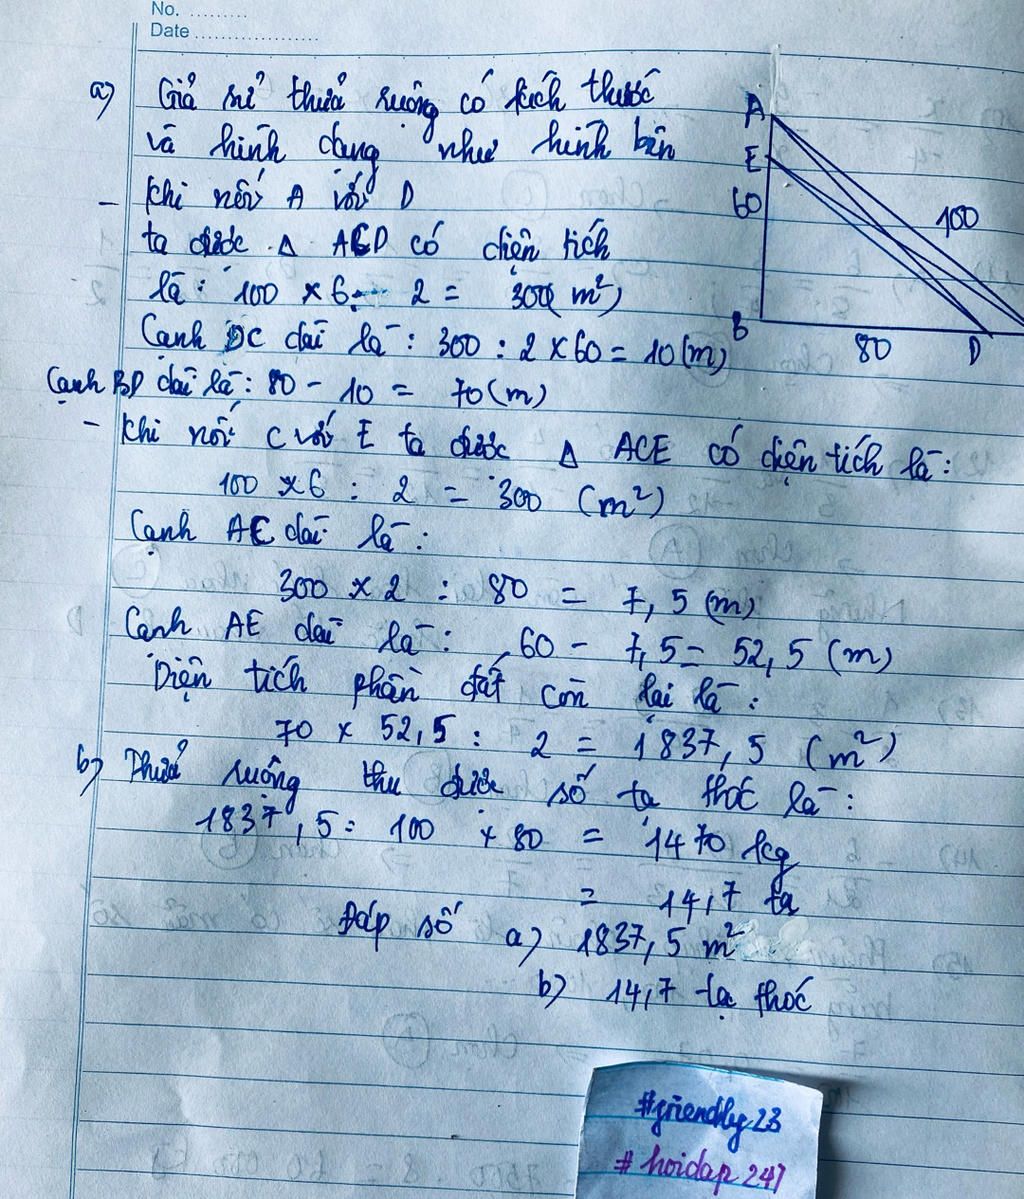 No. .........
Date ...................
a) Giả sử thửa ruộng có kích thước
và hình dạng như hình bên
A
E
60
100
B
80
D
- Khi nối A với D
ta được Δ ACD có diện tích
là: 100 x 6 : 2 = 300 (m²)
Cạnh DC dài là: 300 : 2 x 60 = 10 (m)
Cạnh BD dài là: 80 - 10 = 70 (m)
- Khi nối C với E ta được Δ ACE có diện tích là:
100 x 6 : 2 = 300 (m²)
Cạnh AE dài là:
300 x 2 : 80 = 7,5 (m)
Cạnh AE dài là: 60 - 7,5 = 52,5 (m)
Diện tích phần đất còn lại là:
70 x 52,5 : 2 = 1837,5 (m²)
b) Thửa ruộng thu được số tạ thóc là:
1837,5 : 100 x 80 = 1470 kg
= 14,7 tạ
Đáp số a) 1837,5 m²
b) 14,7 tạ thóc
#friendly23
# hoidap 247